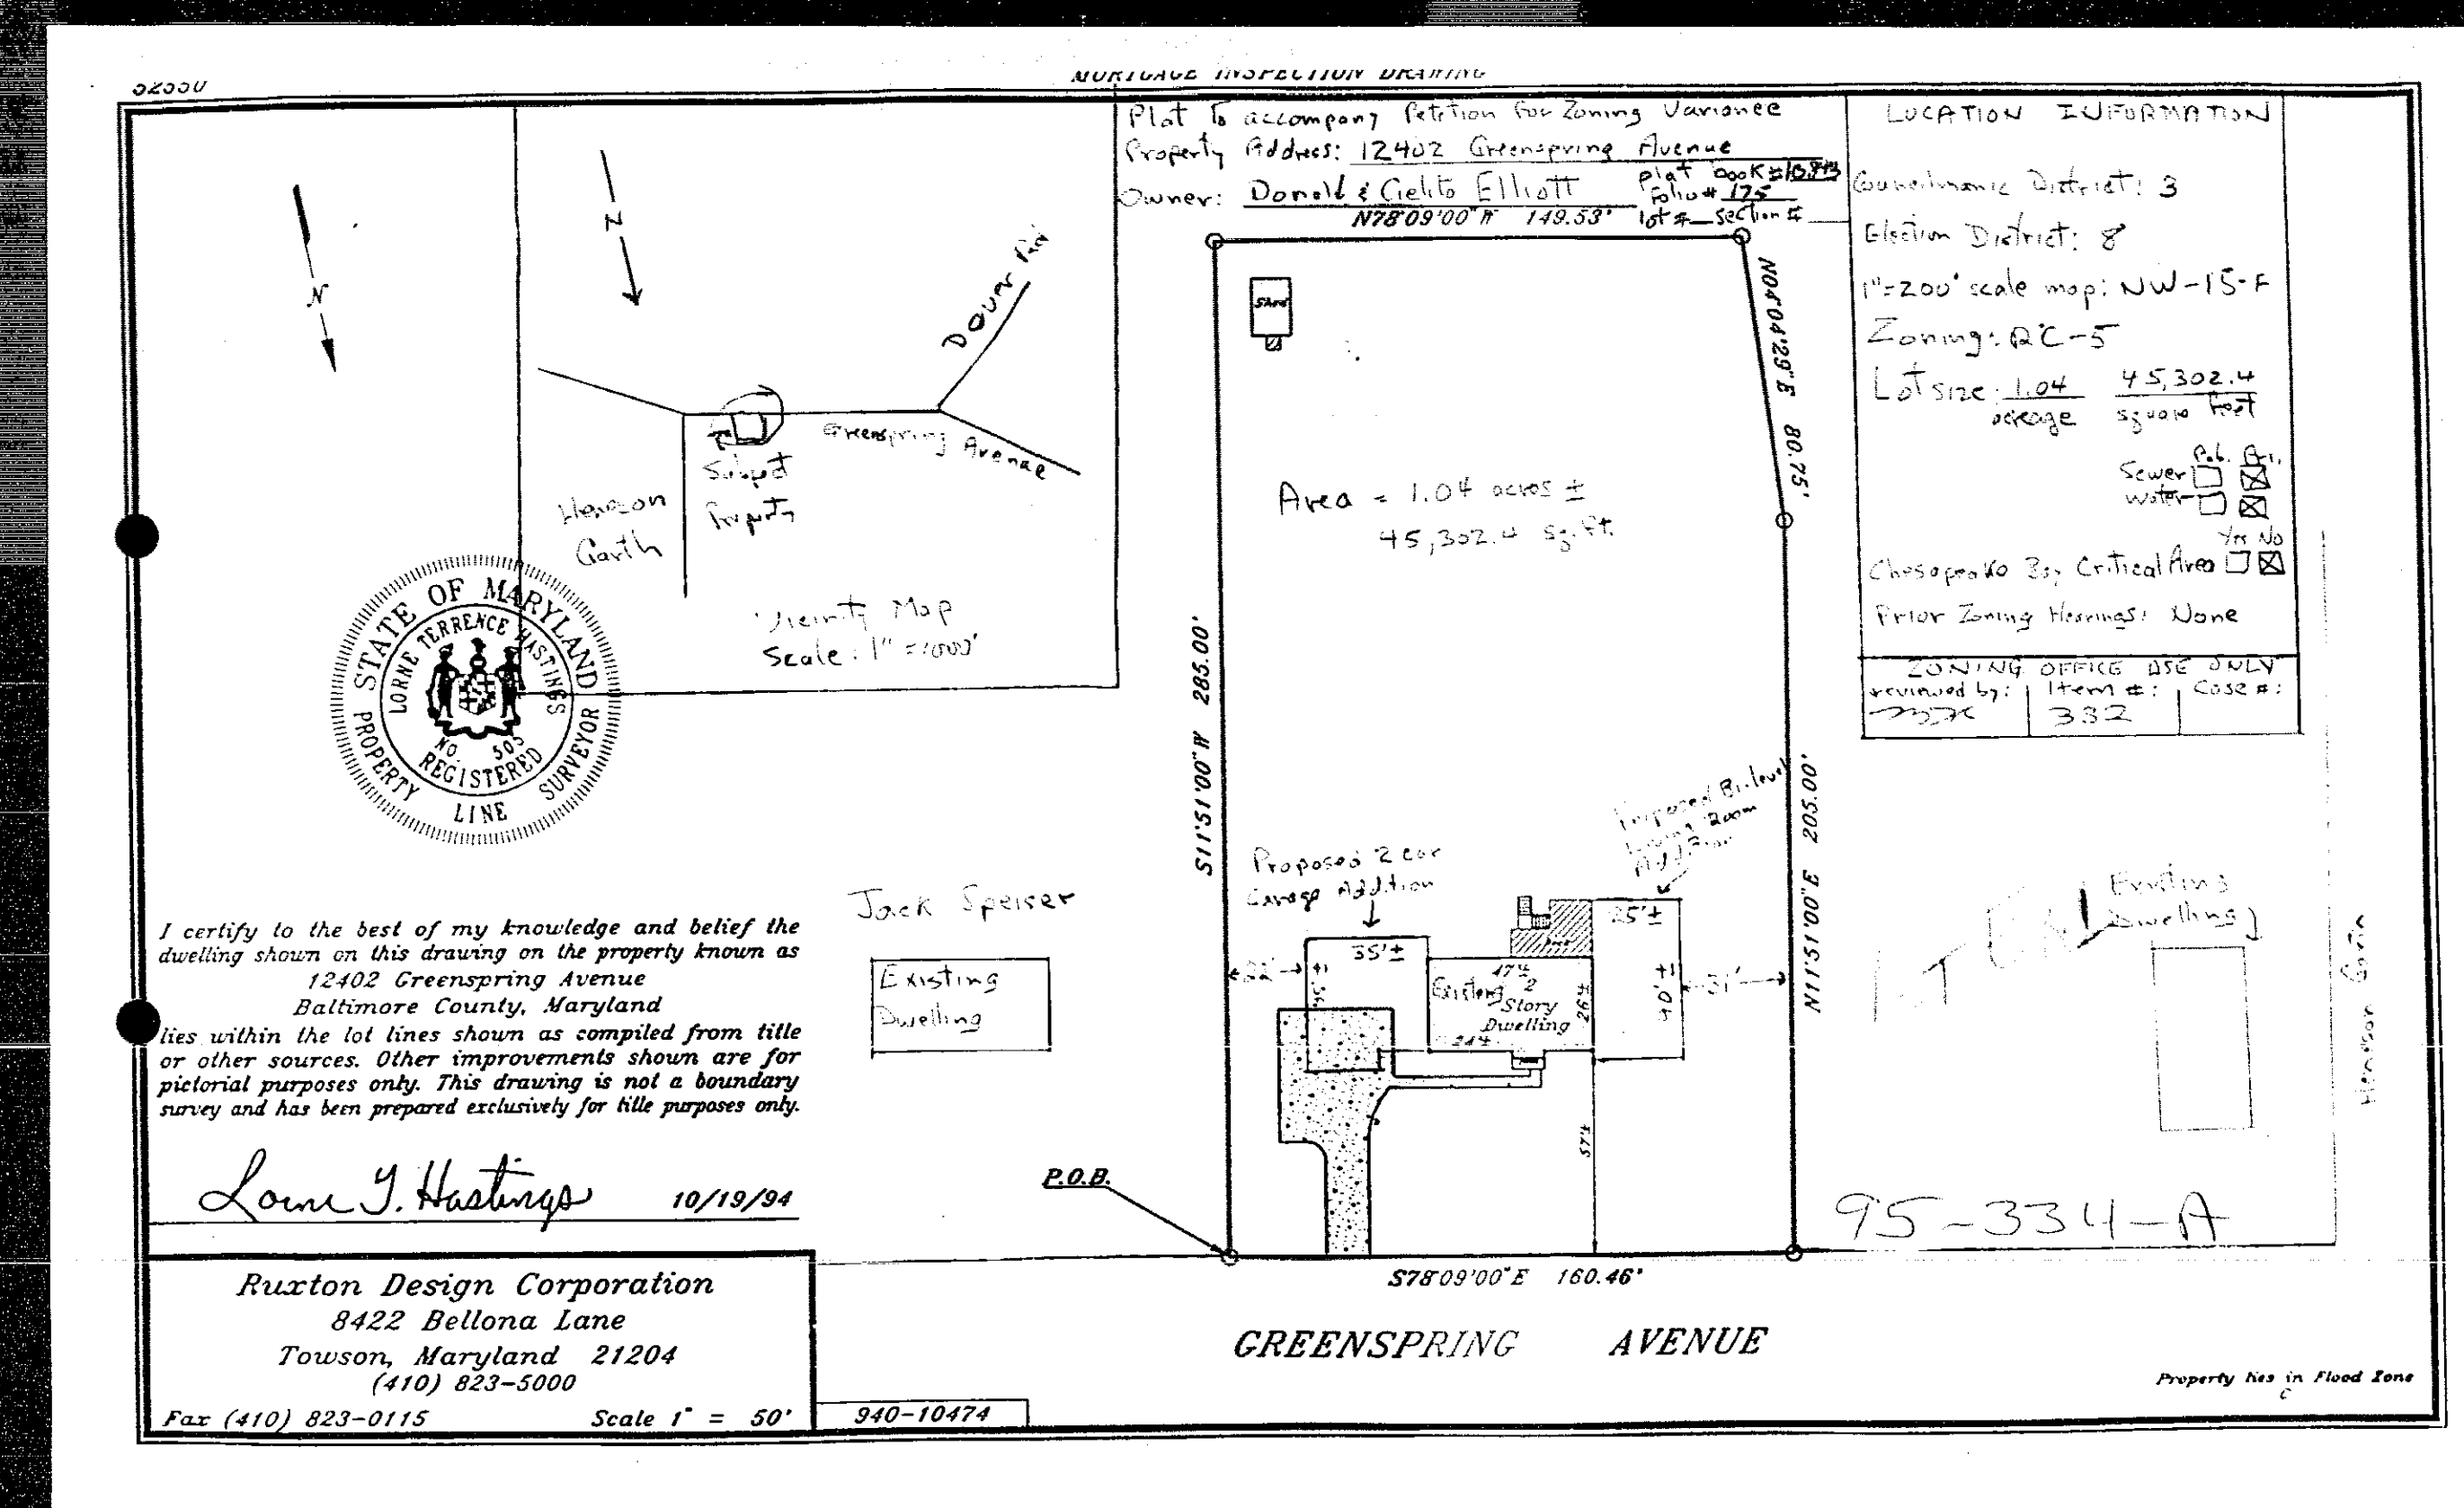 52550
MORTGAGE INSPECTION DRAWING
Plat to accompany Petition for Zoning Variance
Property Address: 12402 Greenspring Avenue
Owner: Donald & Cielito Elliott
plat book #
Folio # 175
lot # section #
LOCATION INFORMATION
Councilmanic District: 3
Election District: 8
1"=200' scale map: NW-15-F
Zoning: RC-5
Lot size: 1.04 45,302.4
acreage square feet
Pub. Pri.
Sewer
Water
Yes No
Chesapeake Bay Critical Area
Prior Zoning Hearings: None
ZONING OFFICE USE ONLY
reviewed by: Item #: Case #:
332
N
N
Dover Rd
Greenspring Avenue
Subject
Property
Henson
Garth
Vicinity Map
Scale: 1" = 1000'
STATE OF MARYLAND
LORNE TERRENCE HASTINGS
NO. 505
REGISTERED
PROPERTY LINE SURVEYOR
N78°09'00"W 149.53'
Shed
N04°04'29"E 80.75'
Area = 1.04 acres ±
45,302.4 sq.ft.
S11°51'00"W 285.00'
N11°51'00"E 205.00'
Proposed Bi-level
Living Room
Addition
Proposed 2 car
Garage Addition
35'±
25'±
40'±
22'
31'
Existing 2
Story
Dwelling
47±
26±
24±
57±
Jack Speiser
Existing
Dwelling
Existing
Dwelling
Henson Garth
I certify to the best of my knowledge and belief the
dwelling shown on this drawing on the property known as
12402 Greenspring Avenue
Baltimore County, Maryland
lies within the lot lines shown as compiled from title
or other sources. Other improvements shown are for
pictorial purposes only. This drawing is not a boundary
survey and has been prepared exclusively for title purposes only.
Lorne T. Hastings 10/19/94
P.O.B.
95-334-A
S78°09'00"E 160.46'
GREENSPRING AVENUE
Ruxton Design Corporation
8422 Bellona Lane
Towson, Maryland 21204
(410) 823-5000
Fax (410) 823-0115 Scale 1" = 50'
940-10474
Property lies in Flood Zone
C